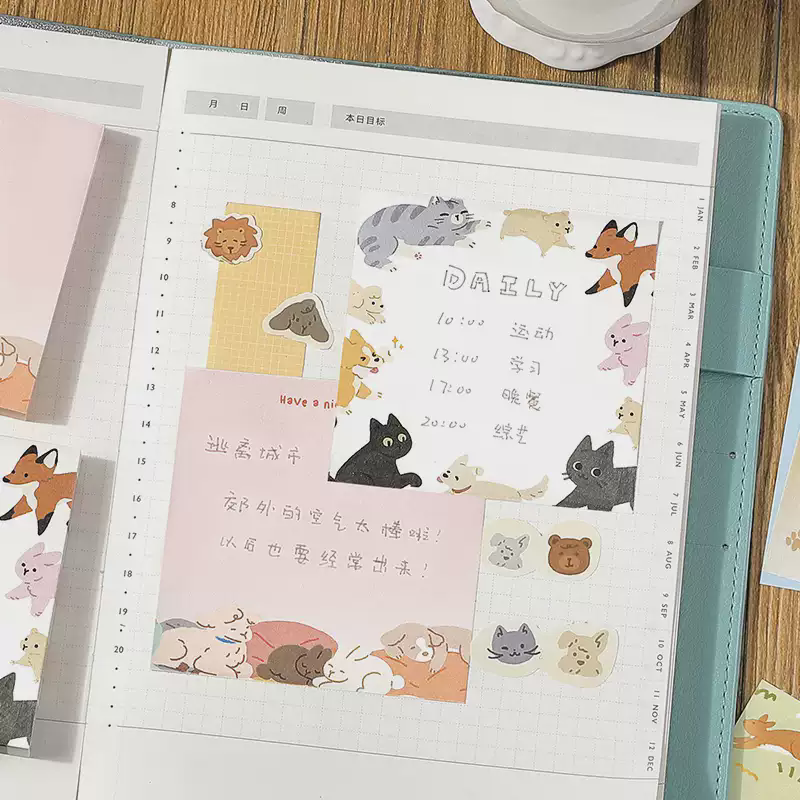 月 日 周 本日目标
8
9
10
11
12
13
14
15
16
17
18
19
20
DAILY
10:00 运动
13:00 学习
17:00 晚餐
20:00 综艺
Have a ni
逃离城市
郊外的空气太棒啦!
以后也要经常出来!
1 JAN
2 FEB
3 MAR
4 APR
5 MAY
6 JUN
7 JUL
8 AUG
9 SEP
10 OCT
11 NOV
12 DEC